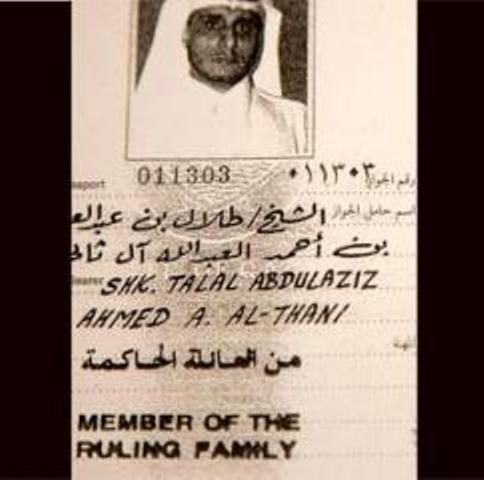 011303 ٠١١٣٠٣ رقم الجواز
اسم حامل الجواز الشيخ/ طلال بن عبدالع
بن أحمد العبدالله آل ثاني
SHK. TALAL ABDULAZIZ
AHMED A. AL-THANI
من العائلة الحاكمة
MEMBER OF THE
RULING FAMILY